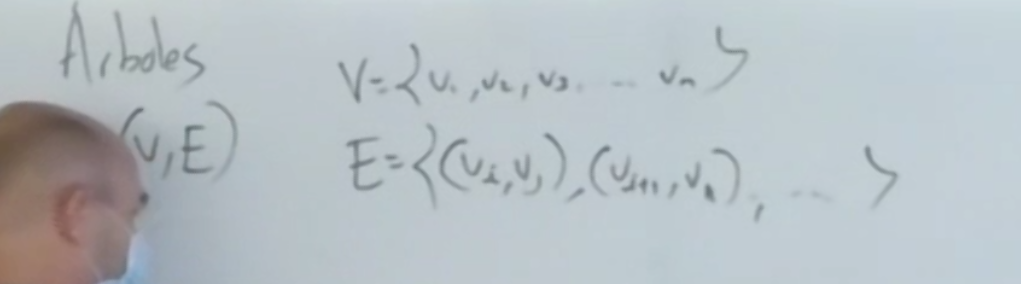 Arboles
V={v₁, v₂, v₃, ... vₙ}
(V,E)
E={(vᵢ,vⱼ),(vᵢ₊₁,vₖ), ... }